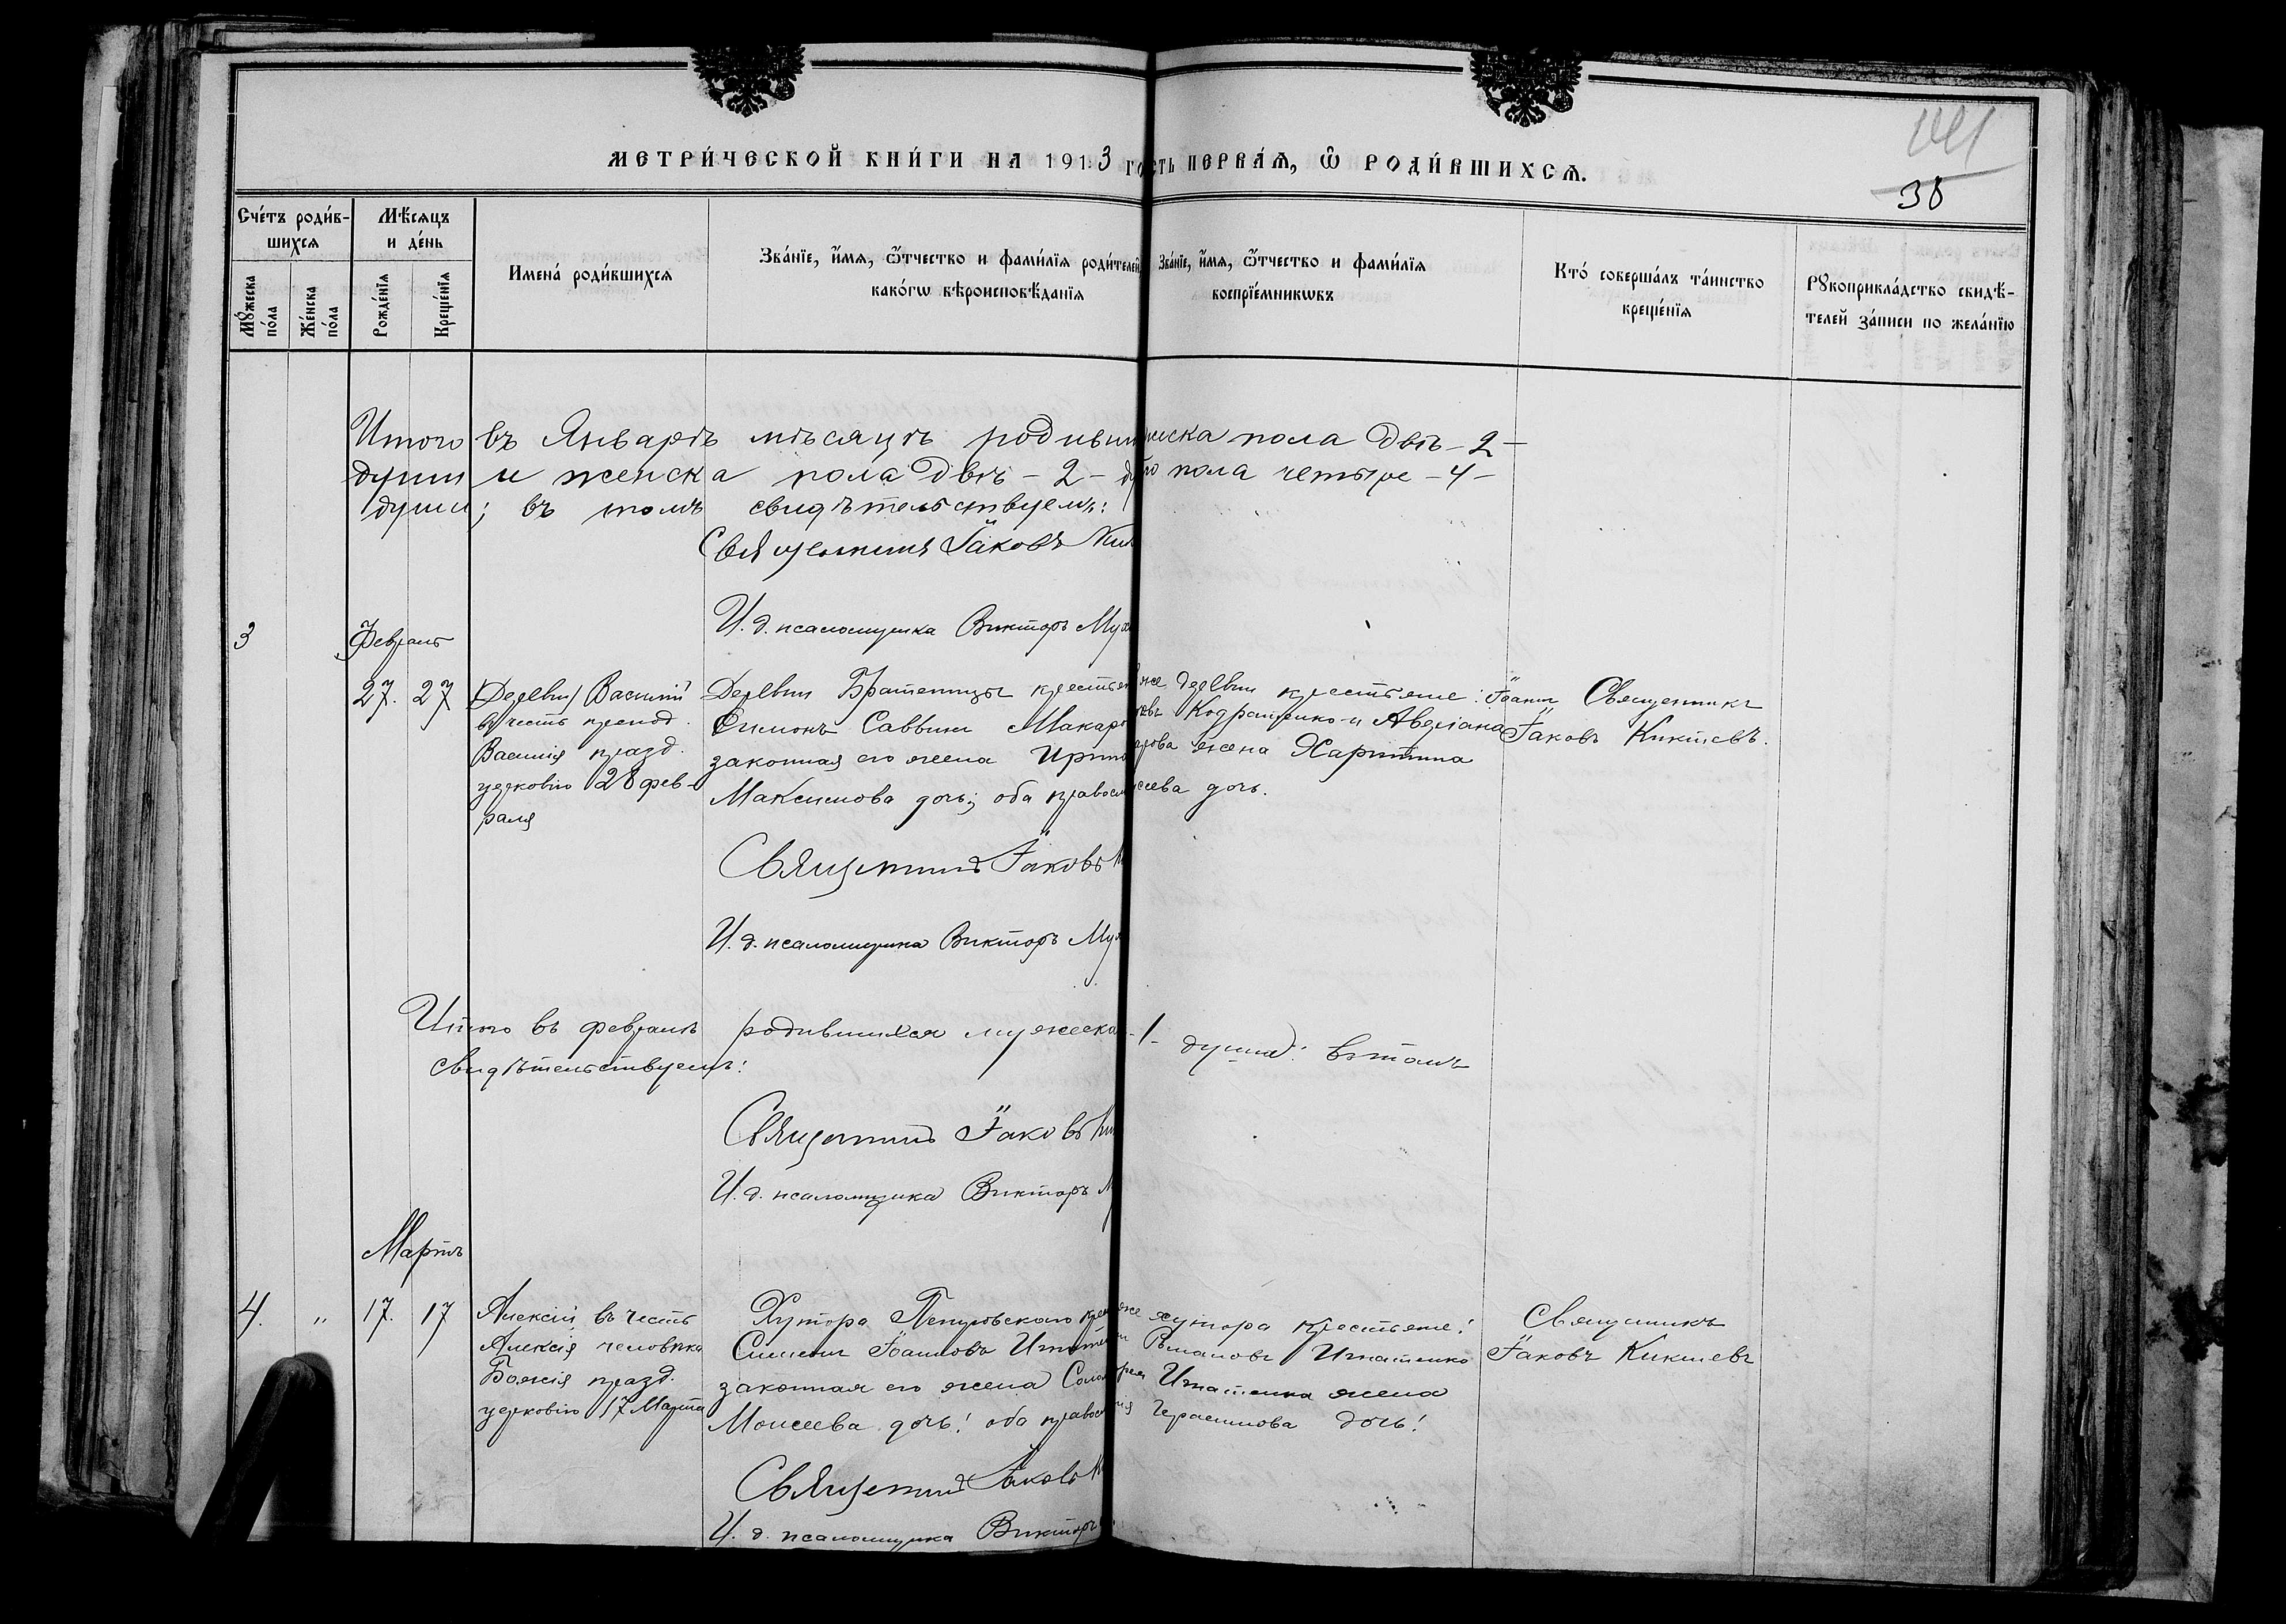 МЕТРИ́ЧЕСКОЙ КНИ́ГИ НА 1913 го
сть ПЕРВА́Я, Ѿ РОДИ́ВШИХСЯ.
38
Сче́тъ роди́в-
шихся
Мѣ́сяцъ
и де́нь
Мꙋ́жеска
по́ла
Же́нска
по́ла
Рожде́нїя
Креще́нїя
Имена́ роди́вшихся
Зва́нїе, и҆́мя, ѻ҆́тчество и фами́лїя роди́телей
како́гѡ вѣроисповѣ́данїя
Зва́нїе, и҆́мя, ѻ҆́тчество и фами́лїя
воспрїе́мникѡвъ
Кто́ соверша́лъ та́инство
креще́нїя
Рꙋкоприкла́дство свидѣ́-
телей за́писи по жела́нїю
Итого въ Январѣ мѣсяцѣ родивш
жеска пола двѣ - 2 -
души и женска пола двѣ - 2 - ду
го пола четыре - 4 -
души; въ томъ свидѣтельствуемъ:
Священникъ Іаковъ Кик
И. д. псаломщика Викторъ Мух
3
Февраль
27. 27
Василій
въ честь препод.
Василія празд.
церковію 28 фев-
раля
Деревни Братеницы крестьян
Симонъ Саввинъ Макар
законная его жена Ирин
Максимова дочь; оба правосл
же деревни крестьяне: Іоаннъ
евъ Кодратенко и Аверіана
арова жена Харитина
сеева дочь.
Священникъ
Іаковъ Кикшевъ.
Священникъ Іаковъ К
И. д. псаломщика Викторъ Мух
Итого въ февралѣ родившихся мужеска
- 1 - душа: въ томъ
свидѣтельствуемъ:
Священникъ Іаковъ Кик
И. д. псаломщика Викторъ М
Мартъ
4. " 17. 17
Алексій въ честь
Алексія человѣка
Божія празд.
церковію 17 Марта
Хутора крес
Симеонъ Іоанновъ Игнатен
законная его жена Солом
Моисеева дочь! оба правосл
же хутора крестьяне:
Игнатенко
Игнатенка жена
Герасимова дочь!
Священникъ
Іаковъ Кикшевъ
Священникъ Іаковъ К
И. д. псаломщика Викторъ